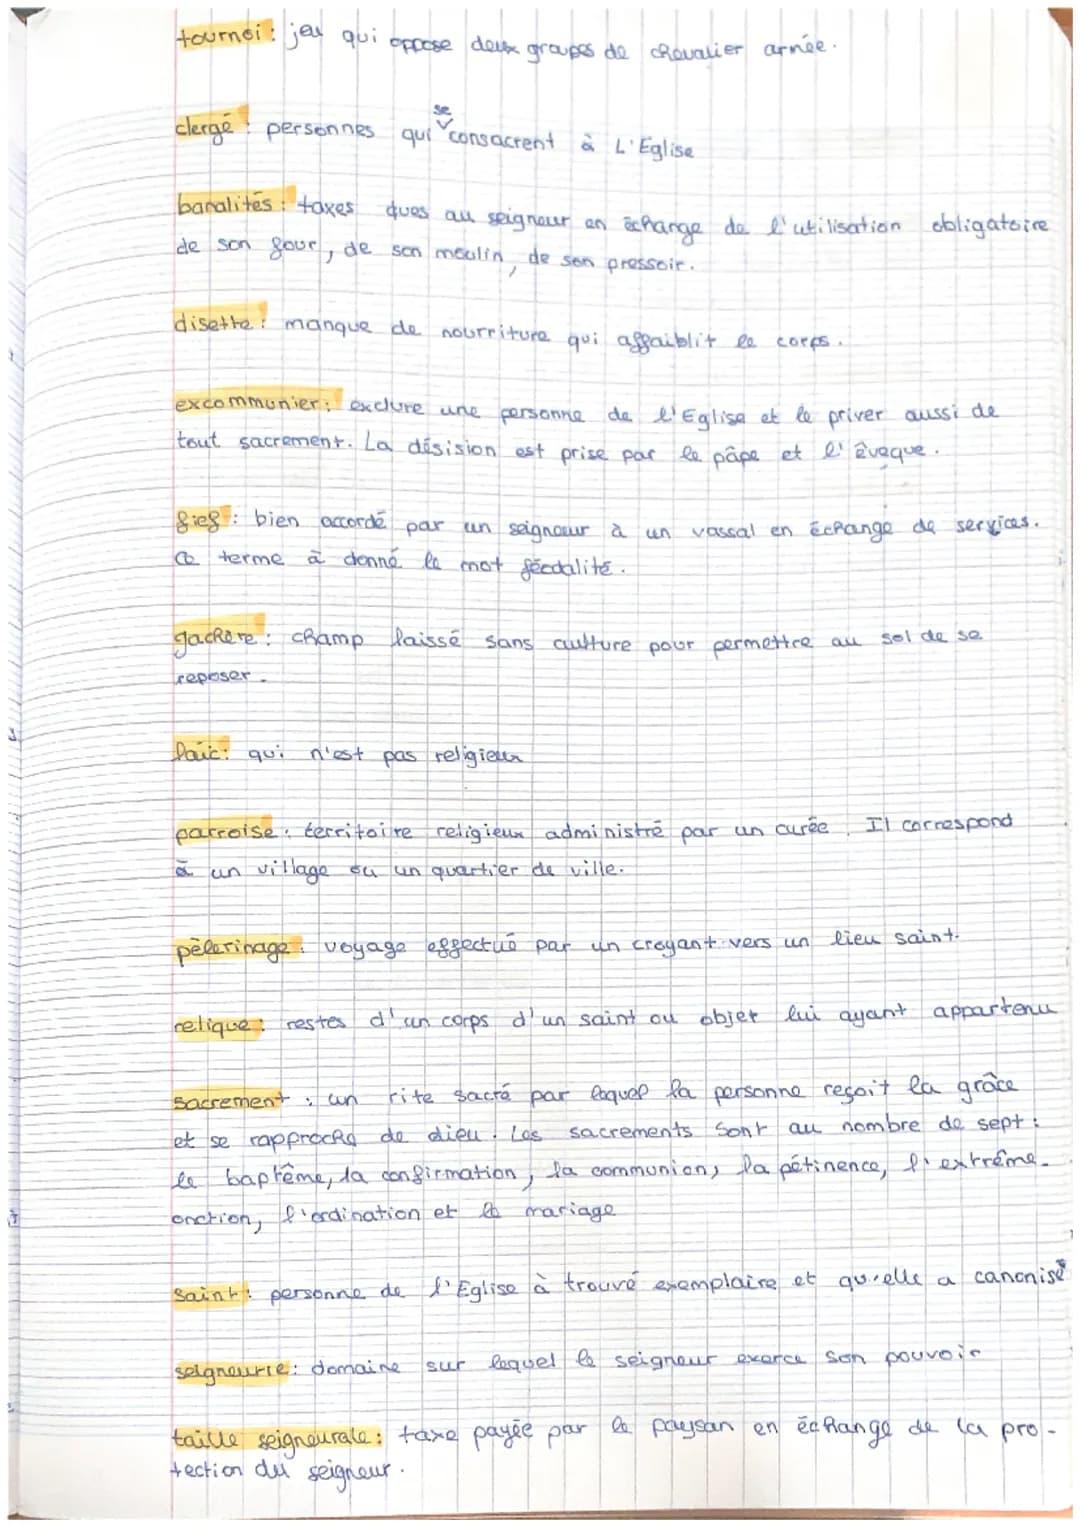 tournoi : jeu qui oppose deux groupes de chevalier armée.
se
clergé : personnes qui consacrent à L'Eglise
banalités : taxes dues au seigneur en échange de l'utilisation obligatoire
de son four, de son moulin, de son pressoir.
disette : manque de nourriture qui affaiblit le corps.
excommunier : exclure une personne de l'Eglise et le priver aussi de
tout sacrement. La désision est prise par le pâpe et l'êveque.
fief : bien accordé par un seigneur à un vassal en échange de services.
Ce terme à donné le mot féodalité.
jachère : champ laissé sans culture pour permettre au sol de se
reposer.
laïc : qui n'est pas religieux
parroise : territoire religieux administré par un curée. Il correspond
à un village ou un quartier de ville.
pèlerinage : voyage effectué par un croyant vers un lieu saint.
relique : restes d'un corps d'un saint ou objet lui ayant appartenu
sacrement : un rite sacré par lequel la personne reçoit la grâce
et se rapproche de dieu. Les sacrements sont au nombre de sept :
le baptême, la confirmation, la communion, la pétinence, l'extrême-
onction, l'ordination et le mariage
saint : personne de l'Eglise à trouvé exemplaire et qu'elle a canonisé
seigneurie : domaine sur lequel le seigneur exerce son pouvoir
taille seigneurale : taxe payée par le paysan en échange de la pro-
tection du seigneur.